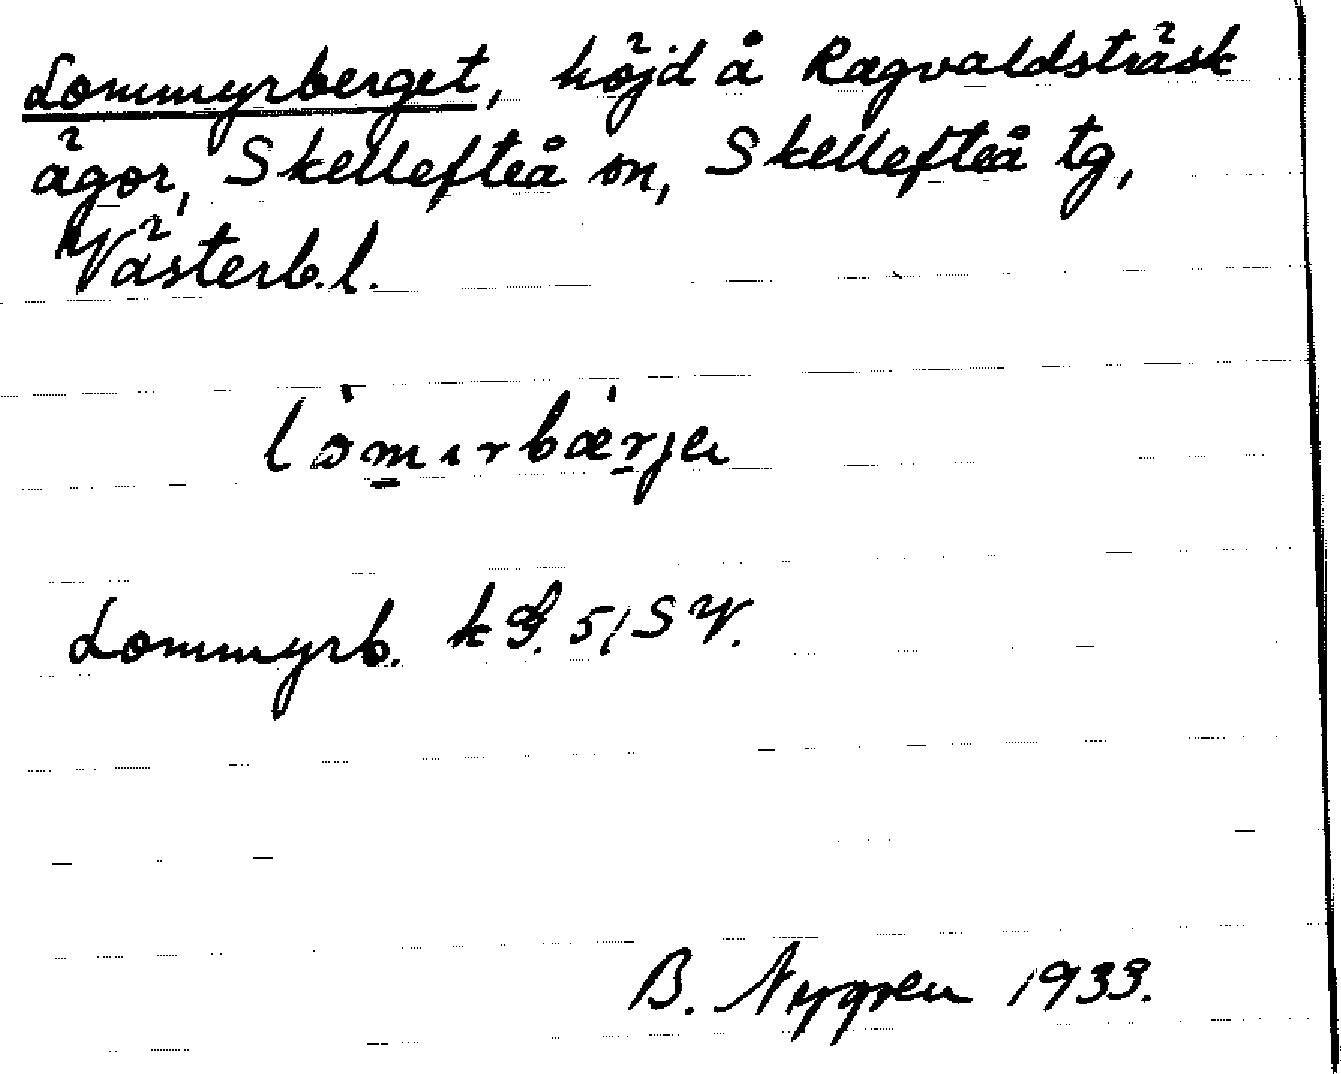 Lommyrberget, höjd å Ragvaldsträsk
ägor, Skellefteå sn, Skellefteå tg,
Västerb.l.
Lommyrb. k G. 51 SV.
B. Nygren 1933.